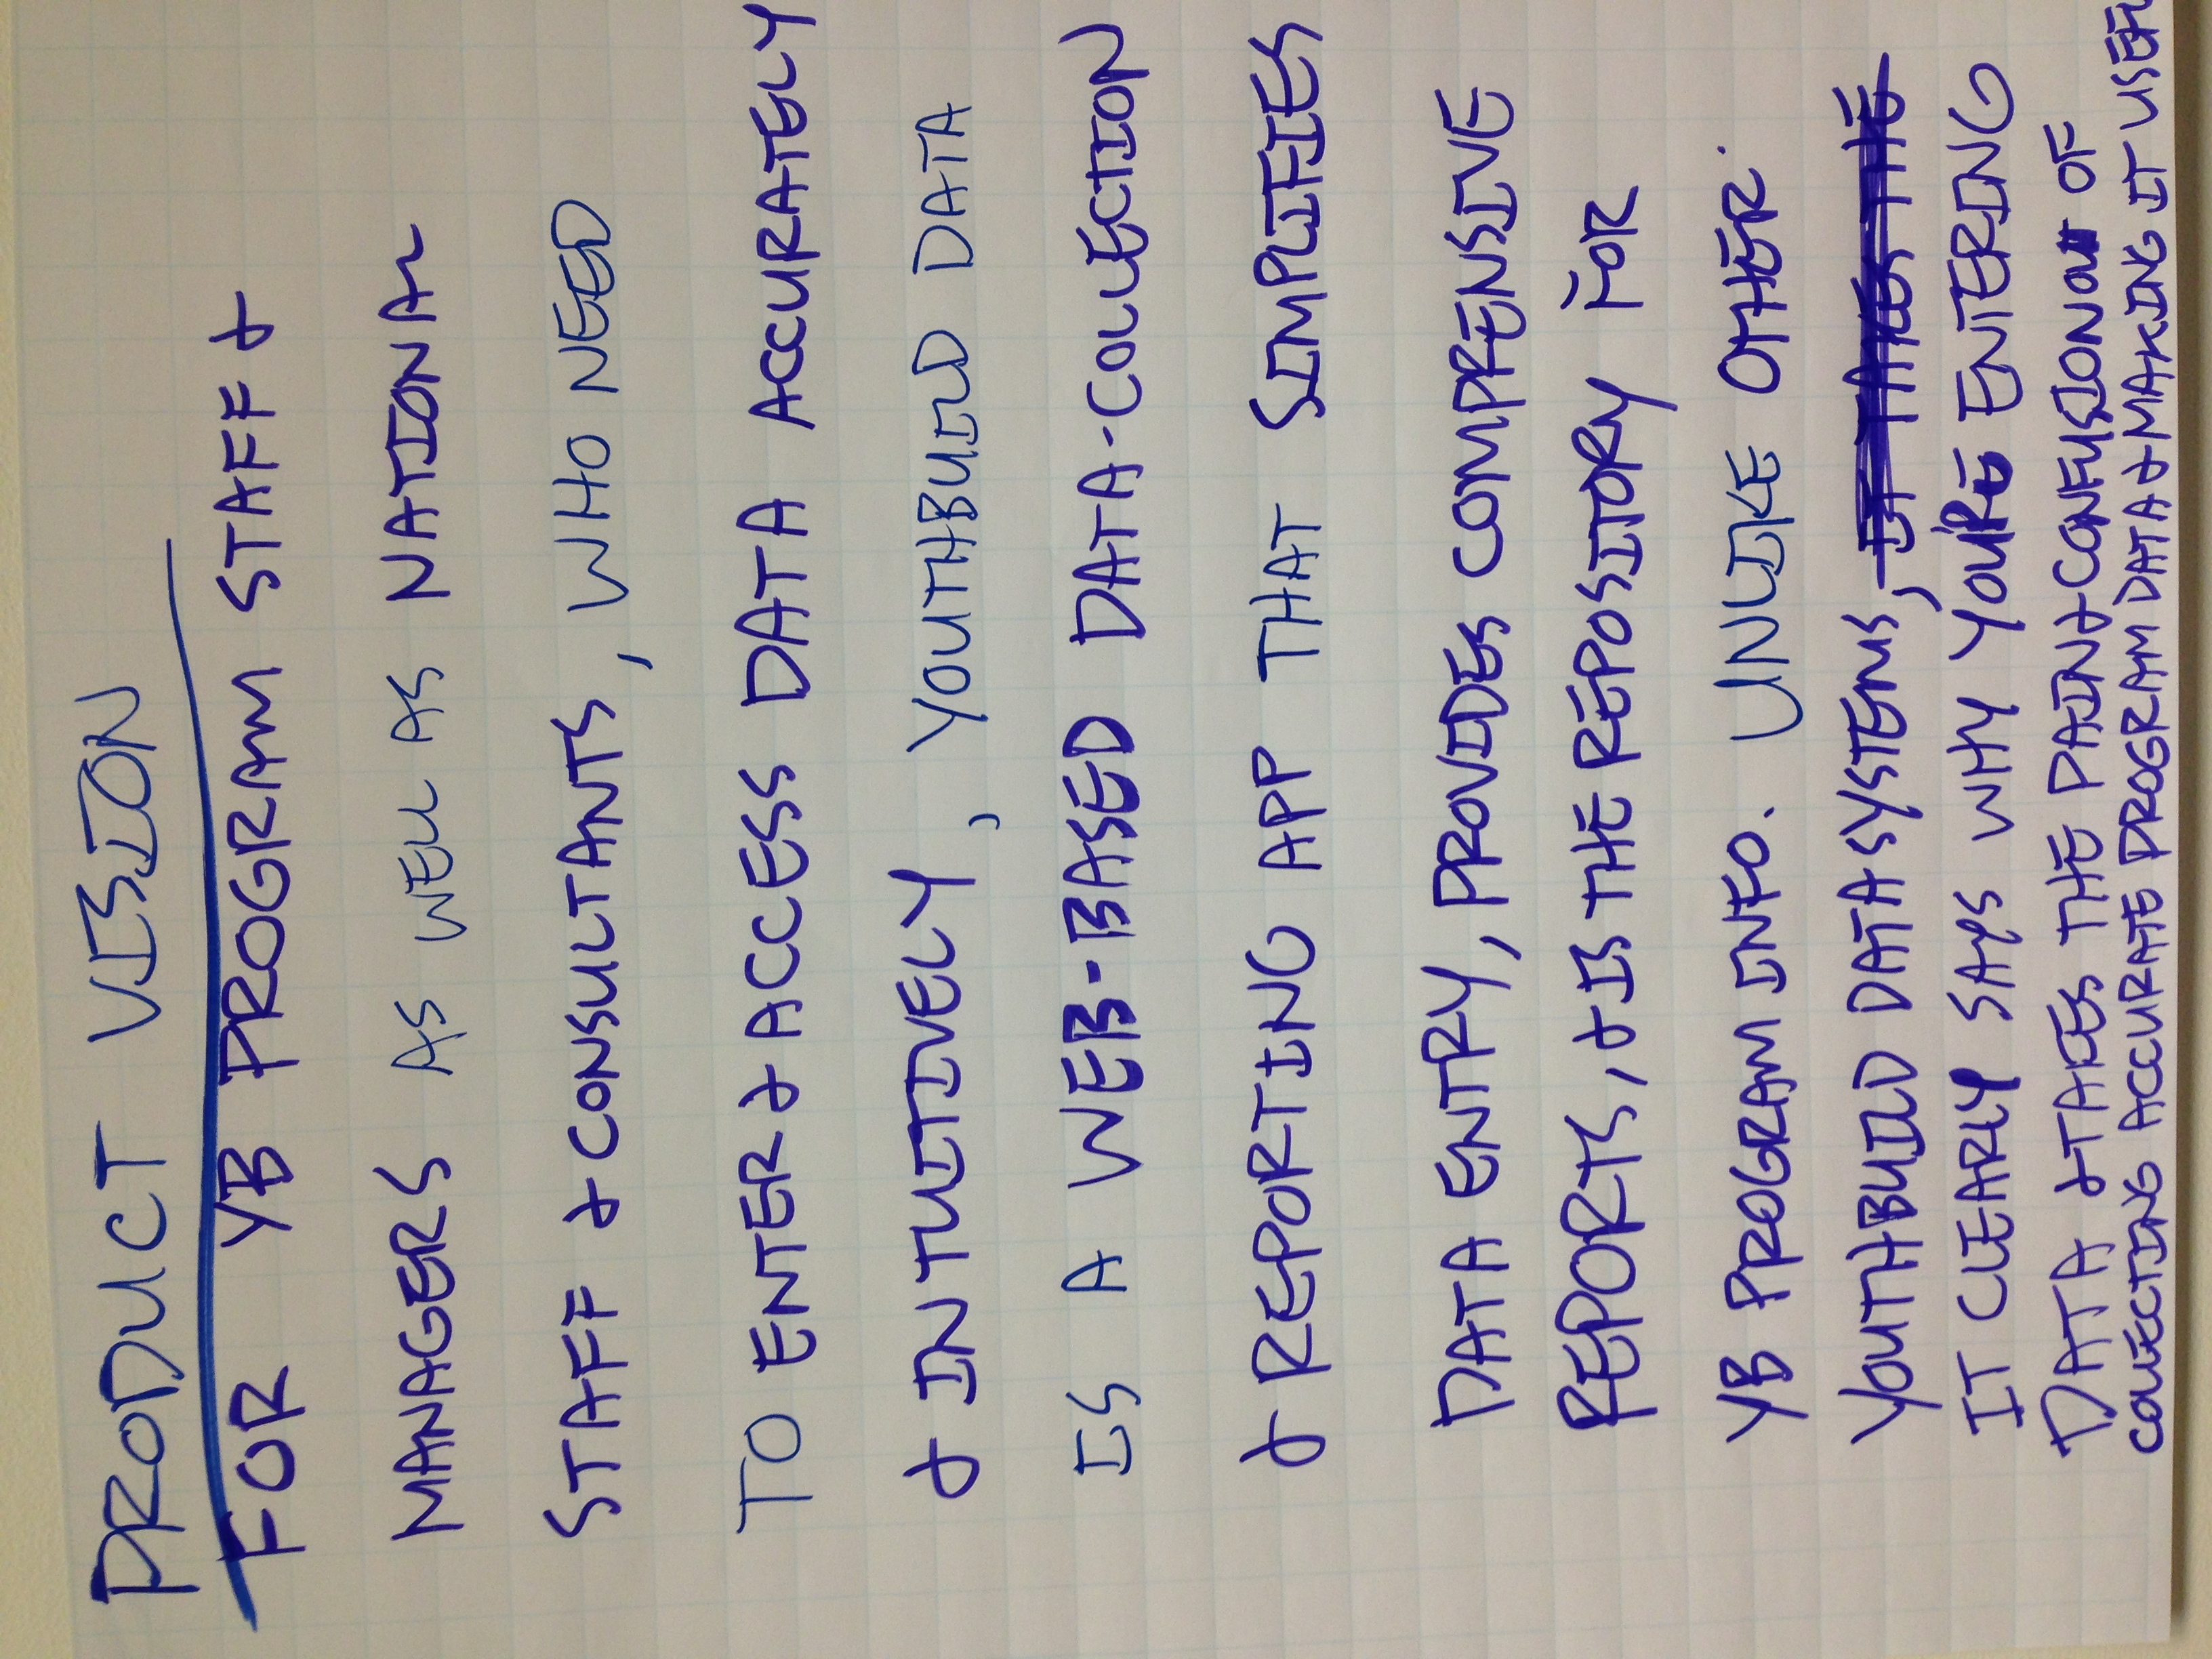 PRODUCT VISION
FOR YB PROGRAM STAFF &
MANAGERS AS WELL AS NATIONAL
STAFF & CONSULTANTS, WHO NEED
TO ENTER & ACCESS DATA ACCURATELY
& INTUITIVELY, YOUTHBUILD DATA
IS A WEB-BASED DATA-COLLECTION
& REPORTING APP THAT SIMPLIFIES
DATA ENTRY, PROVIDES COMPRENSIVE
REPORTS, & IS THE REPOSITORY FOR
YB PROGRAM INFO. UNLIKE OTHER
YOUTHBUILD DATA SYSTEMS, IT TAKES THE
IT CLEARLY SAYS WHY YOU'RE ENTERING
DATA & TAKES THE PAIN & CONFUSION OUT OF
COLLECTING ACCURATE PROGRAM DATA & MAKING IT USEFU